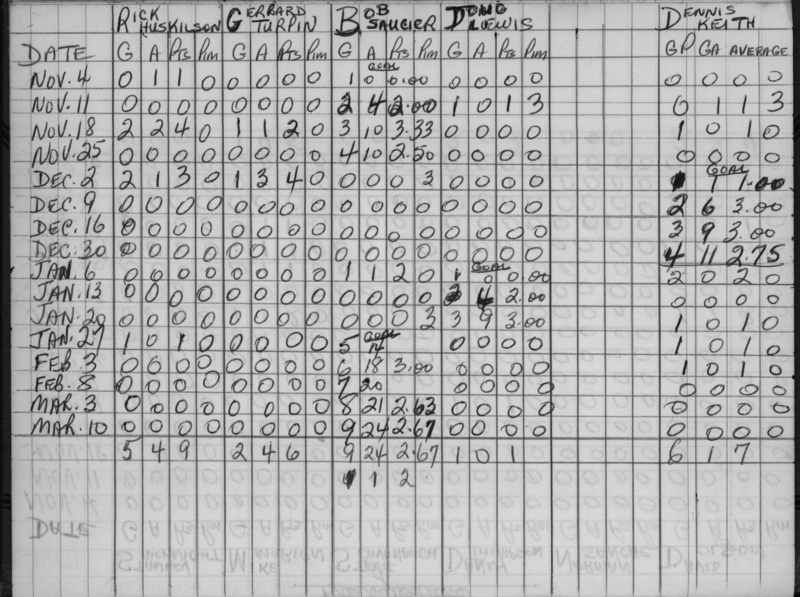 RICK HUSKILSON GERRARD TURPIN BOB SAUCIER DOUG LLEWIS DENNIS KEITH
DATE G A Pts Pim G A Pts Pim G A Pts Pim G A Pts Pim GP GA AVERAGE
GOAL
NOV. 4 0 1 1 0 0 0 0 0 1 0 0.00 0 0 0 0 0 0 0 0
NOV. 11 0 0 0 0 0 0 0 0 2 4 2.00 1 0 1 3 0 1 1 3
NOV. 18 2 2 4 0 1 1 2 0 3 10 3.33 0 0 0 0 1 0 1 0
NOV. 25 0 0 0 0 0 0 0 0 4 10 2.50 0 0 0 0 0 0 0 0
GOAL
DEC. 2 2 1 3 0 1 3 4 0 0 0 0 3 0 0 0 0 1 1 1.00
DEC. 9 0 0 0 0 0 0 0 0 0 0 0 0 0 0 0 0 2 6 3.00
DEC. 16 0 0 0 0 0 0 0 0 0 0 0 0 0 0 0 0 3 9 3.00
DEC. 30 0 0 0 0 0 0 0 0 0 0 0 0 0 0 0 0 4 11 2.75
GOAL
JAN. 6 0 0 0 0 0 0 0 0 1 1 2 0 1 0 0.00 2 0 2 0
JAN. 13 0 0 0 0 0 0 0 0 0 0 0 0 4 2.00 0 0 0 0
JAN. 20 0 0 0 0 0 0 0 0 0 0 0 3 3 9 3.00 1 0 1 0
GOAL
JAN. 27 1 0 1 0 0 0 0 0 5 14 0 0 0 0 1 0 1 0
FEB. 3 0 0 0 0 0 0 0 0 6 18 3.00 0 0 0 0 1 0 1 0
FEB. 8 0 0 0 0 0 0 0 0 7 20 0 0 0 0 0 0 0 0
MAR. 3 0 0 0 0 0 0 0 0 8 21 2.63 0 0 0 0 0 0 0 0
MAR. 10 0 0 0 0 0 0 0 0 9 24 2.67 0 0 0 0 0 0 0 0
5 4 9 2 4 6 9 24 2.67 1 0 1 6 1 7
1 1 2